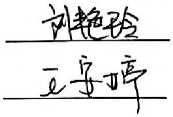 刘艳玲
王宇婷